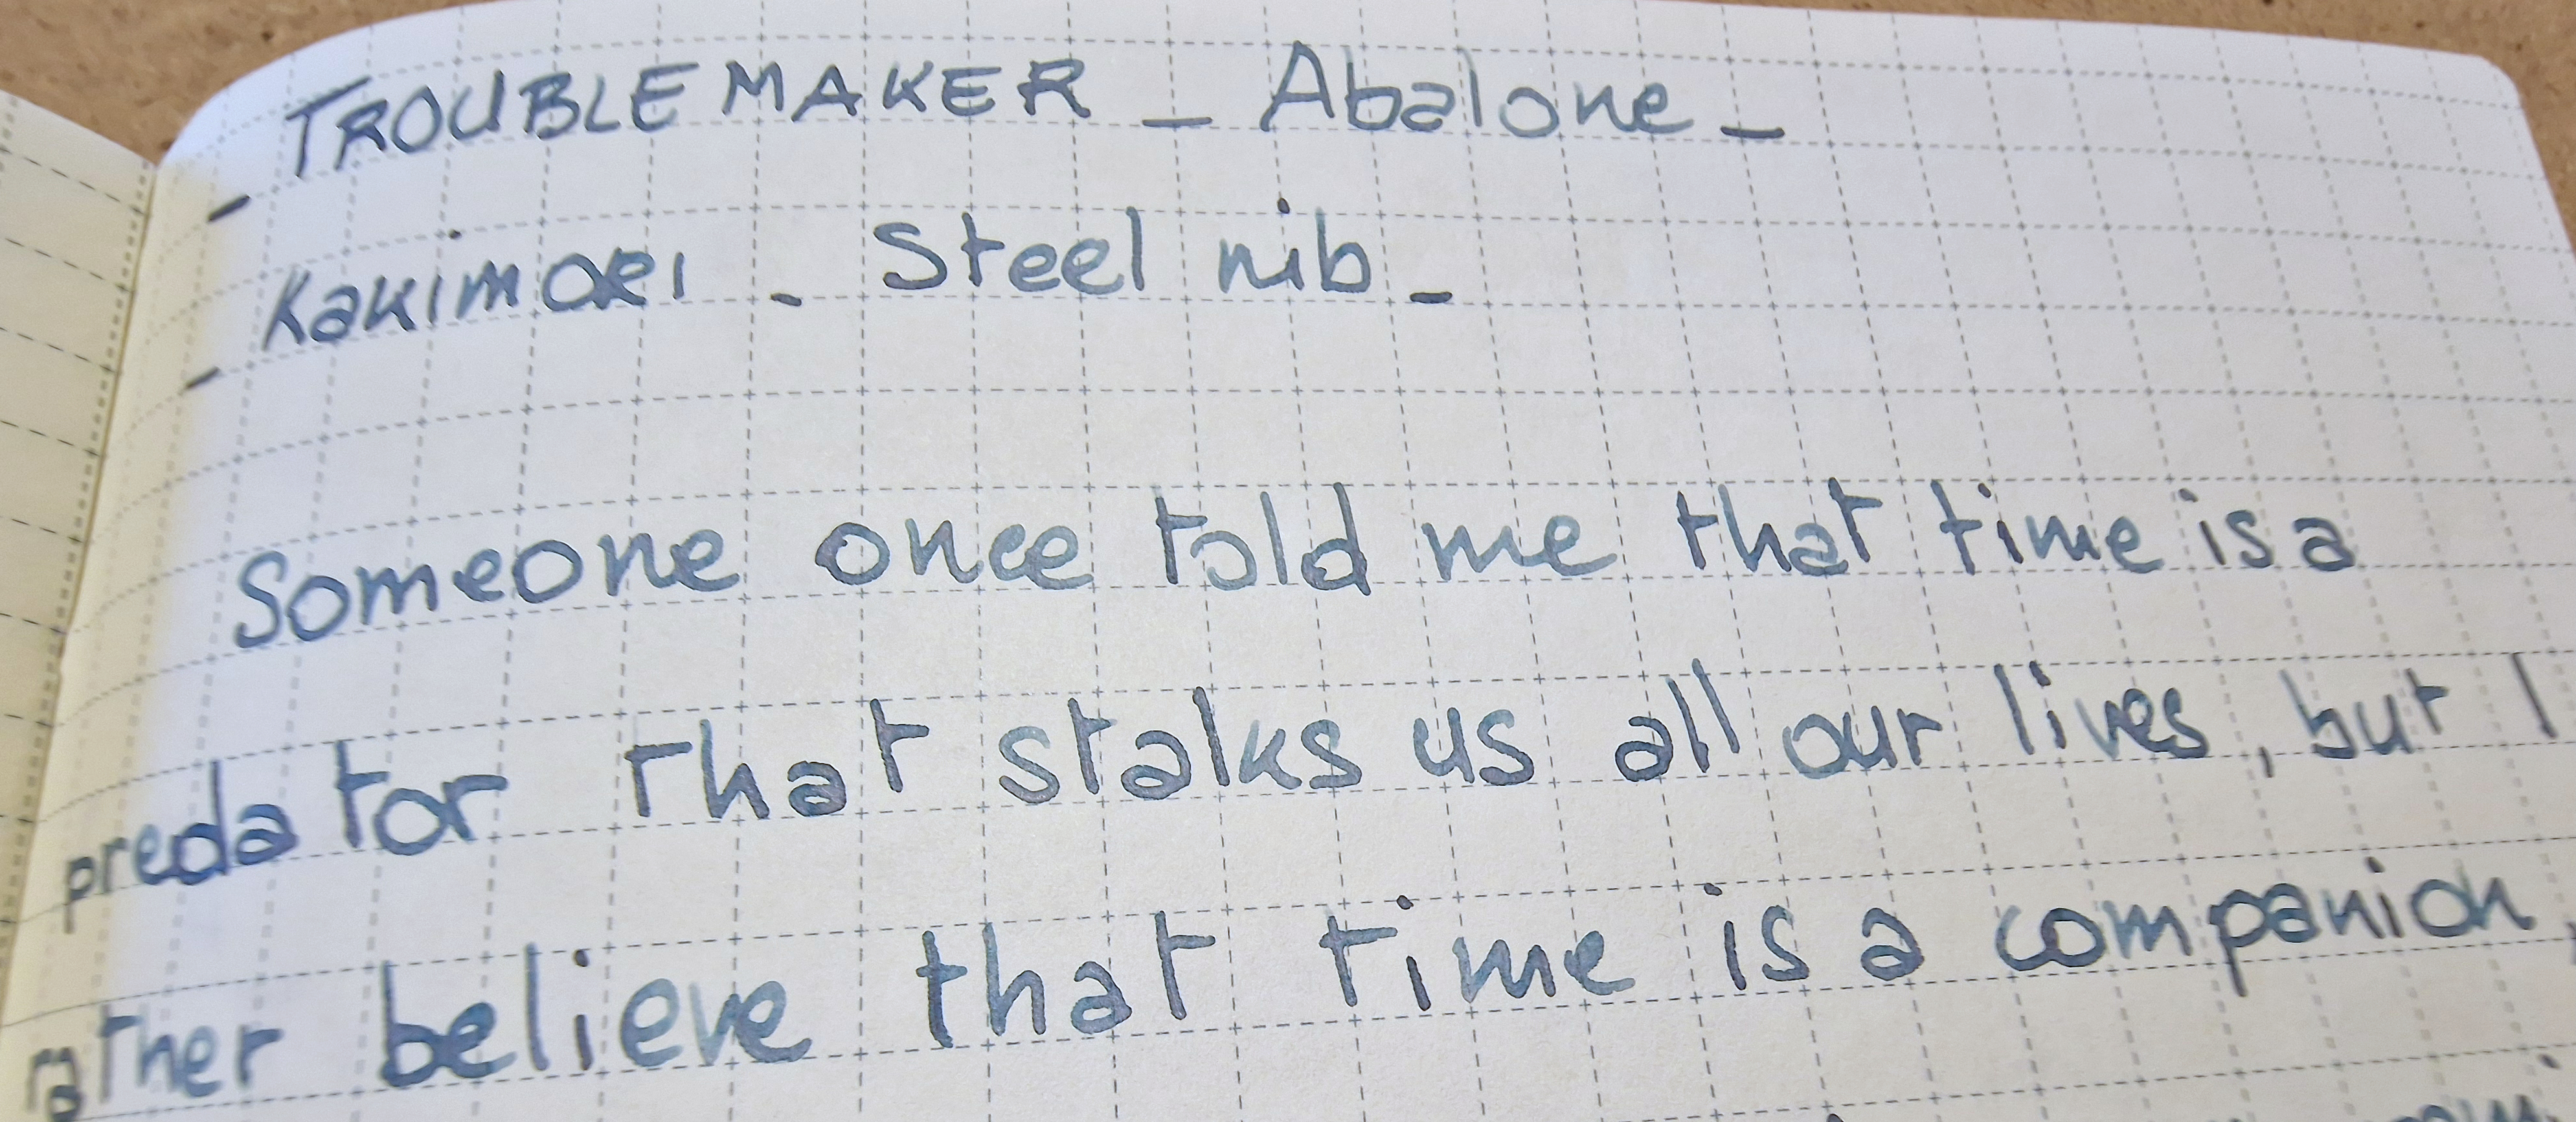 - TROUBLEMAKER - Abalone -
- Kakimori - Steel nib -
Someone once told me that time is a
predator that stalks us all our lives, but I
rather believe that time is a companion